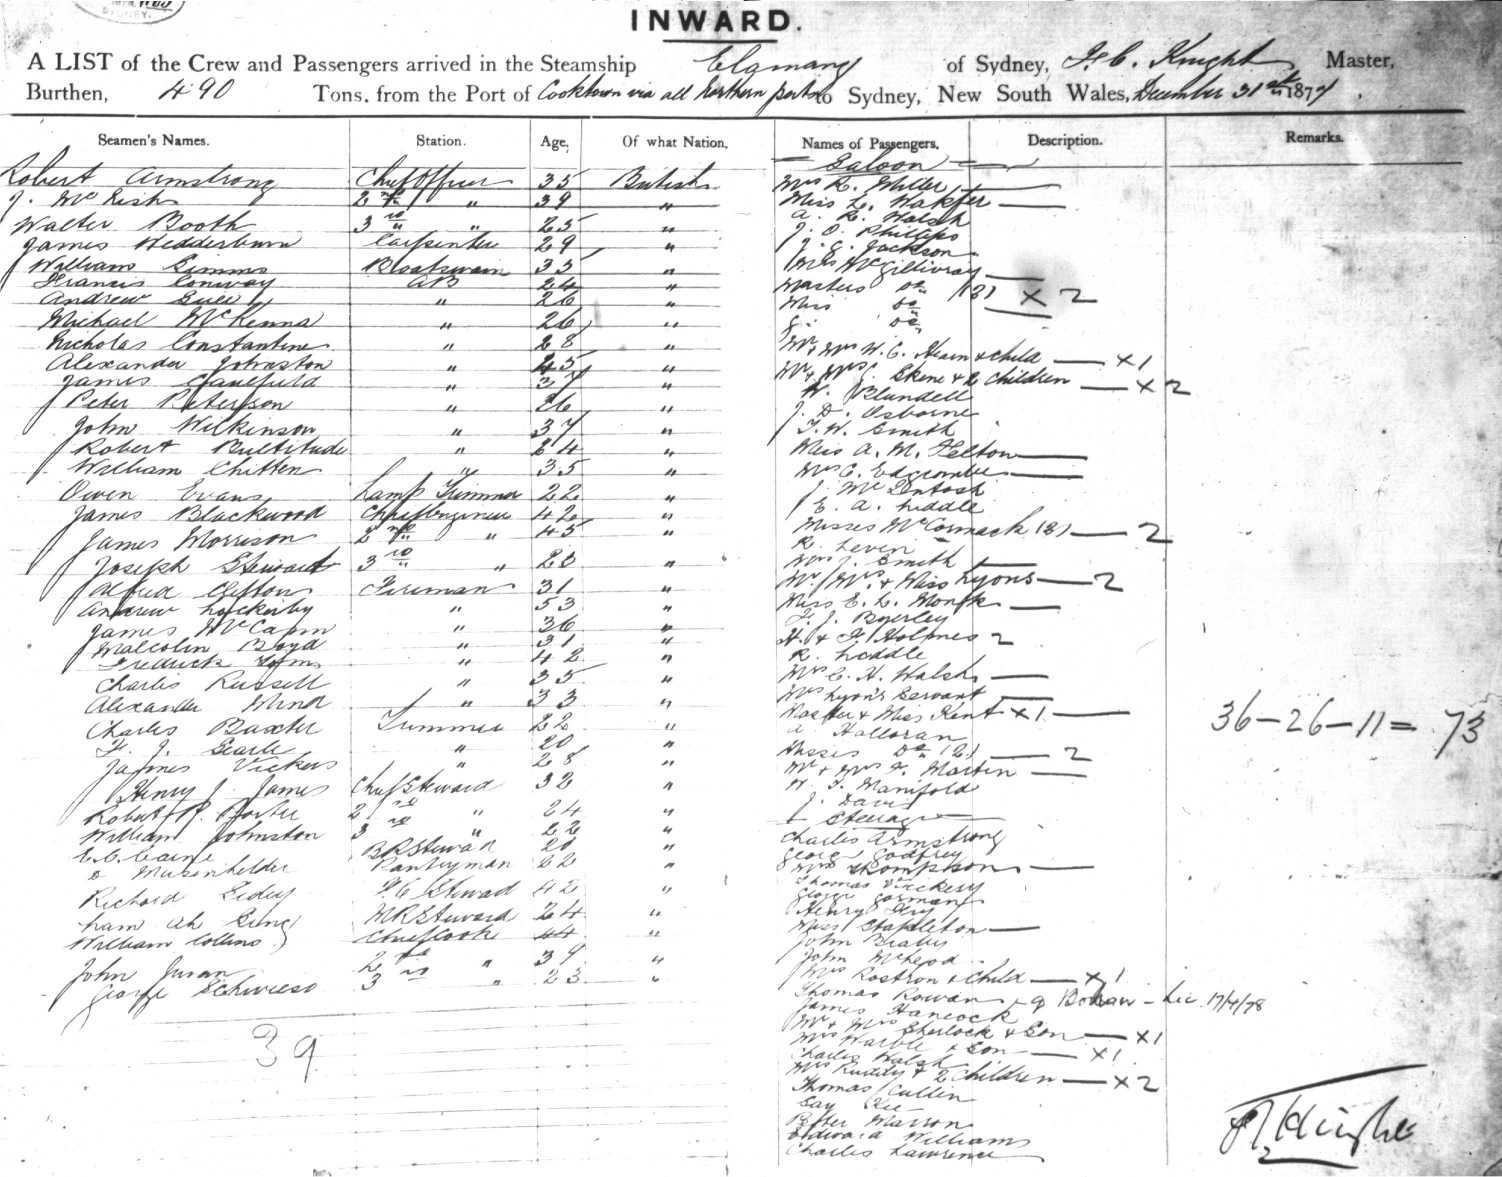 SYDNEY.
INWARD.
A LIST of the Crew and Passengers arrived in the Steamship Elamang of Sydney, F. C. Knight Master,
Burthen, 490 Tons, from the Port of Cooktown via all Northern ports to Sydney, New South Wales, December 31st 1877.
Seamen's Names. Station. Age, Of what Nation, Names of Passengers, Description. Remarks.
Saloon
Robert Armstrong Chief Officer 35 British
J. 2nd " 39 "
Walter Booth 3rd " 25 "
James Hedderburn Carpenter 29 "
William Simms Boatswain 35 "
Francis Conway AB 24 "
Andrew " 26 "
Michael McKenna " 26 "
Nicholas Constantine " 28 "
Alexander Johnston " 45 "
James " 37 "
Peter Peterson " 26 "
John Wilkinson " 37 "
Robert Bultitude " 24 "
William Chitten " 35 "
Owen Evans Lamp Trimmer 22 "
James Blackwood Chief Engineer 42 "
James Morrison 2nd " 45 "
Joseph Stewart 3rd " 25 "
Alfred Clifton Fireman 31 "
Andrew Lockerby " 53 "
James McCann " 36 "
Malcolm Boyd " 31 "
Fredrick " 42 "
Charles Russell " 35 "
Alexander Mind " 33 "
Charles Baxter Trimmer 22 "
F. J. Searle " 20 "
James Vickers " 28 "
Henry J. James Chief Steward 32 "
Robert R. Porter 2nd " 24 "
William Johnston 3rd " 22 "
E. C. Caine BR Steward 20 "
Musenhelder Pantryman 22 "
Richard Sidey F.C Steward 42 "
Ham Ah Sung MR Steward 24 "
William Collins Chief Cook 44 "
John Juran 2nd " 39 "
George 3rd " 23 "
39
Mrs R. Miller
Miss L. Walker
A. R. Walsh
J. O. Phillips
J. G. Jackson
Mrs McGillivray
Masters Do (2) x 2
Miss Do
G. Do
Mr & Mrs W. C. Hearn & child x 1
Mr & Mrs Skene & 2 children x 2
W. Blundell
J. D. Osborne
T. W. Smith
Miss A. M. Felton
Mrs C. Edgcombe
J. McIntosh
E. A. Liddle
Misses McCormack (2) 2
R. Leven
Mrs J. Smith
Mr, Mrs & Miss Lyons 2
Miss E. L. Monk
F. J. Byerley
H. & F. Holmes 2
R. Liddle
Mrs C. H. Walsh
Mrs Lyon's Servant
Master & Miss Kent x 1
A Halloran
Misses Do (2) 2
Mr & Mrs F. Martin
W. T. Manifold
J. Davis
36 - 26 - 11 = 73
Steerage
Charles Armstrong
George Godfrey
Mrs Thompson
Thomas Vickery
George Gorman
Henry Fry
Miss Stapleton
John Braby
John McLeod
Mrs Rostron & Child x 1
Thomas Rowan
James Hancock
Mr & Mrs Sherlock & Son x 1
Mrs Warble & Son x 1
Charles Walsh
Mrs Ruddy & 2 Children x 2
Thomas Cullin
Say Kee
Peter Marron
Edward Williams
Charles Lawrence